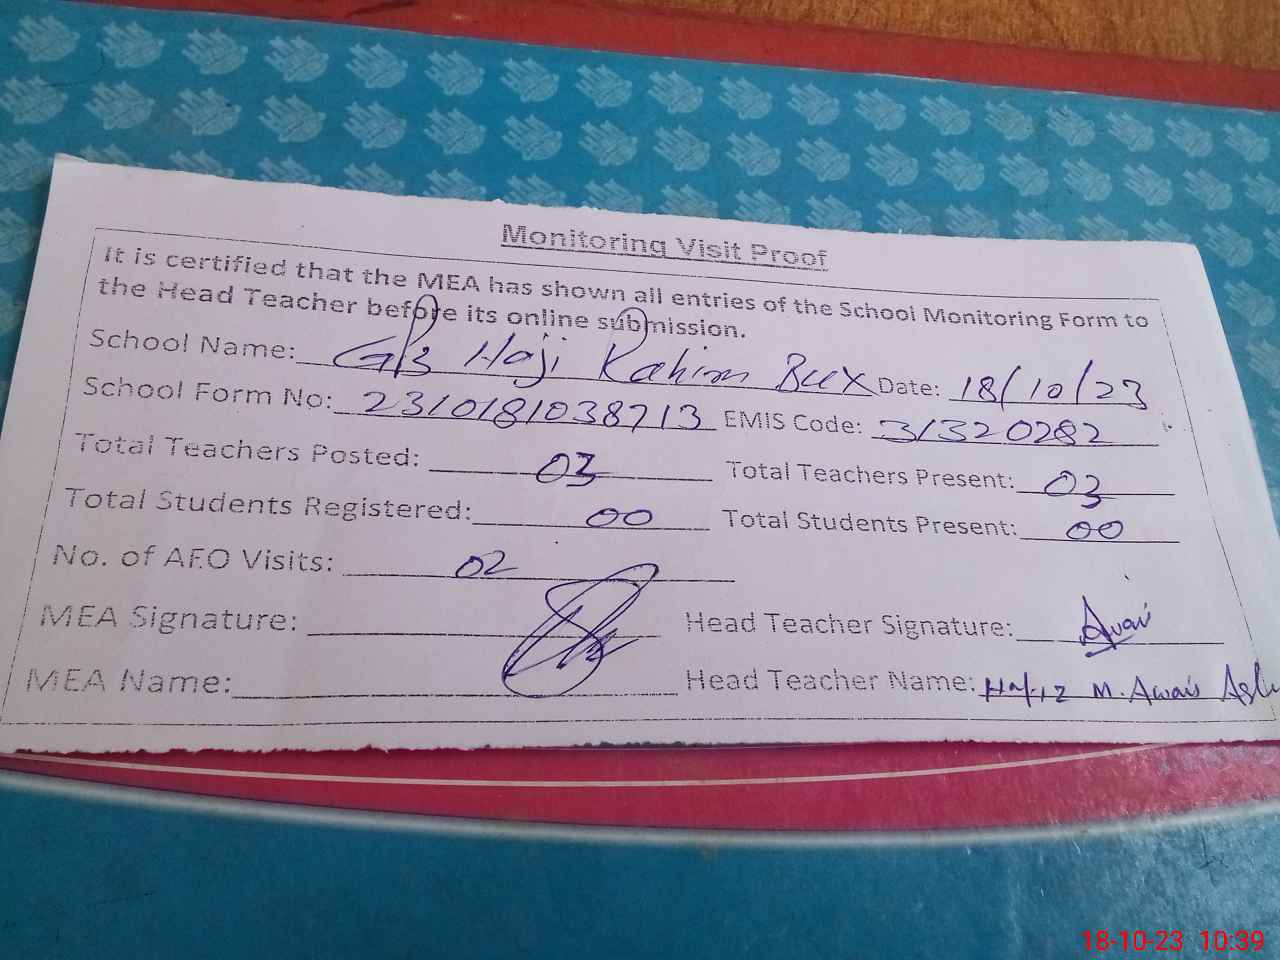 Monitoring Visit Proof
It is certified that the MEA has shown all entries of the School Monitoring Form to
the Head Teacher before its online submission.
School Name: GPS Haji Rahim Bux Date: 18/10/23
School Form No: 2310181038713 EMIS Code: 31320282
Total Teachers Posted: 03 Total Teachers Present: 03
Total Students Registered: 00 Total Students Present: 00
No. of AEO Visits: 02
MEA Signature: Head Teacher Signature: Awais
MEA Name: Head Teacher Name: Hafiz M. Awais
18-10-23 10:39